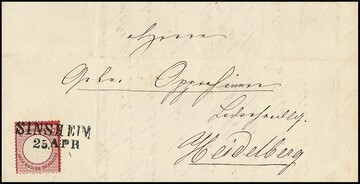 Herrn
Gebr. Oppenheimer
Lederhandlg.
Heidelberg
SINSHEIM
25 APR